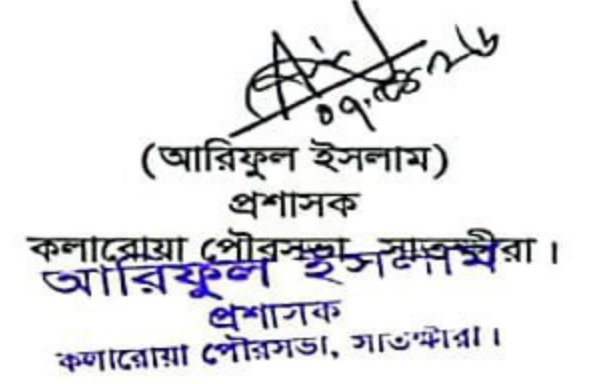 (আরিফুল ইসলাম)
প্রশাসক
কলারোয়া পৌরসভা, সাতক্ষীরা।
আরিফুল ইসলাম
প্রশাসক
কলারোয়া পৌরসভা, সাতক্ষীরা।